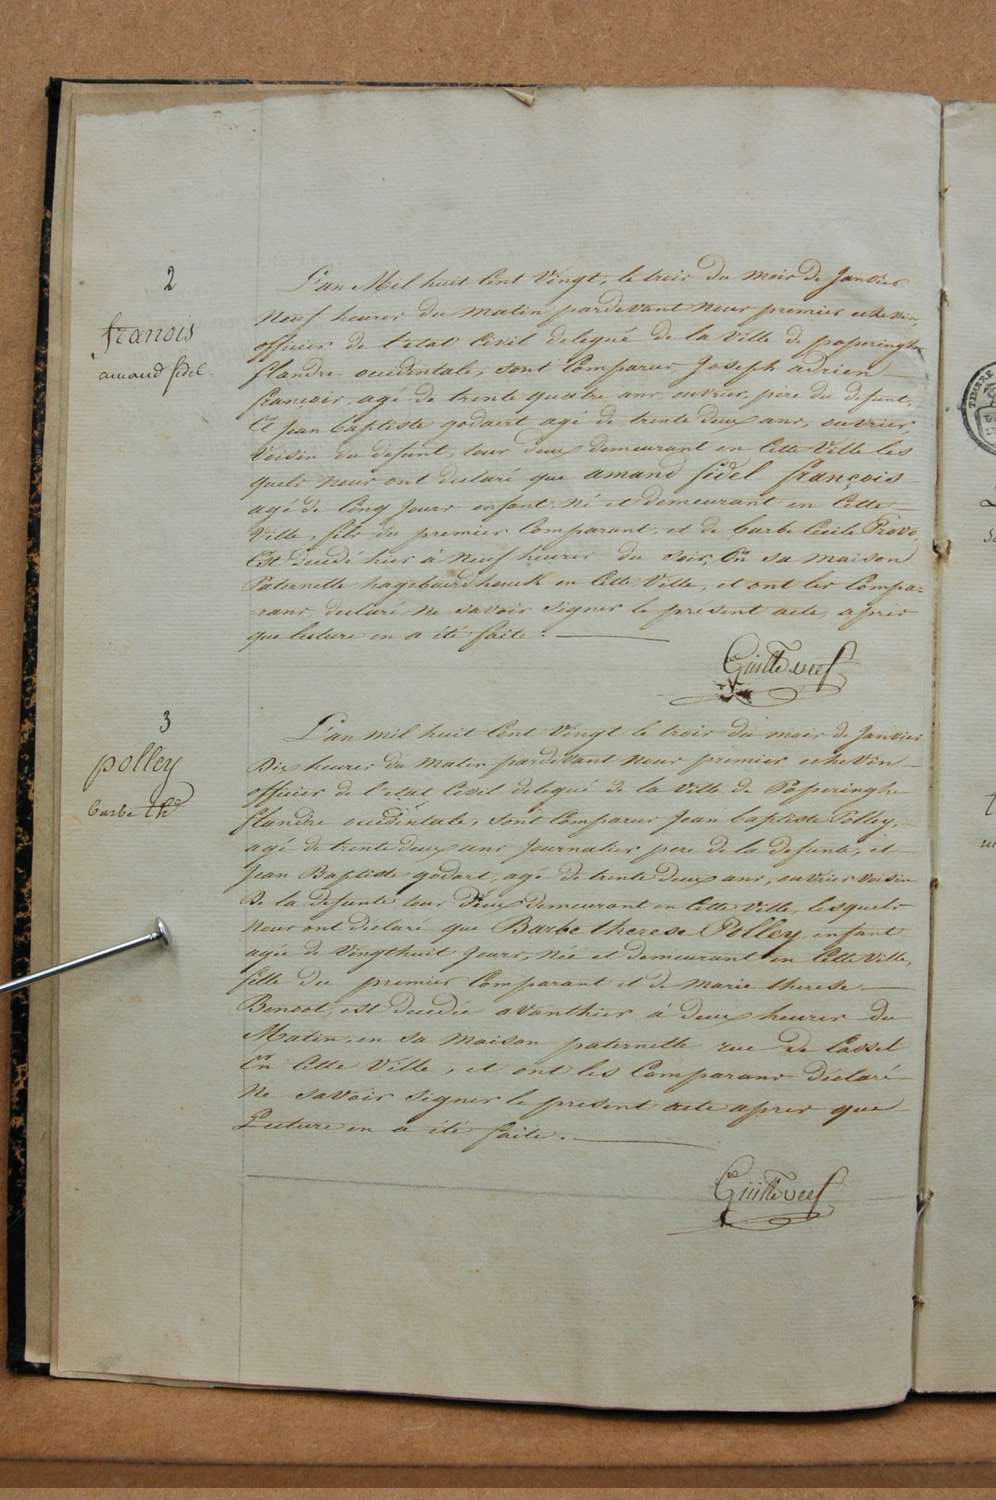 2
franois
amand fidel.
L'an Mil huit Cent Vingt, le trois du mois de Janvier
Neuf heures du matin pardevant Nous premier echevin,
officier de l'etat Civil delegué de la Ville de poperinghe
flandre occidentale, sont Comparus Joseph adrien
françois, agé de trente quatre ans, ouvrier, père du defunt,
Et Jean baptiste godaert agé de trente deux ans, ouvrier,
Voisin du defunt, tous deux demeurant en Cette Ville les
quels nous ont declaré que amand fidel françois
agé de Cinq Jours enfant né et demeurant en Cette
Ville, fils du premier Comparant, et de barbe Cecile Provo,
Est decedé hier à Neuf heures du Soir, En sa maison
Paternelle en Cette Ville, et ont les Compa=
=rans declaré ne savoir signer le présent acte, après
que lecture en a été faite.
3
polley
barbe th
L'an mil huit Cent Vingt le trois du mois de Janvier
Dix heures du matin pardevant Nous premier echevin
officier de l'etat Civil delegué de la Ville de Poperinghe
flandre occidentale, sont Comparus Jean baptiste Polley,
agé de trente deux ans Journalier pere de la defunte, et
Jean Baptiste godart, agé de trente deux ans, ouvrier voisin
De la defunte tous Deux demeurant en Cette Ville, lesquels
Nous ont déclaré que Barbe therese Polley, enfant
agée de Vingthuit Jours, née et demeurant en Cette Ville,
fille du premier Comparant et de marie therese
est decedée avanthier à deux heures du
Matin, en sa maison paternelle rue de Cassel
En Cette Ville, et ont les Comparans déclaré
Ne savoir signer le present acte apres que
Lecture en a été faite.